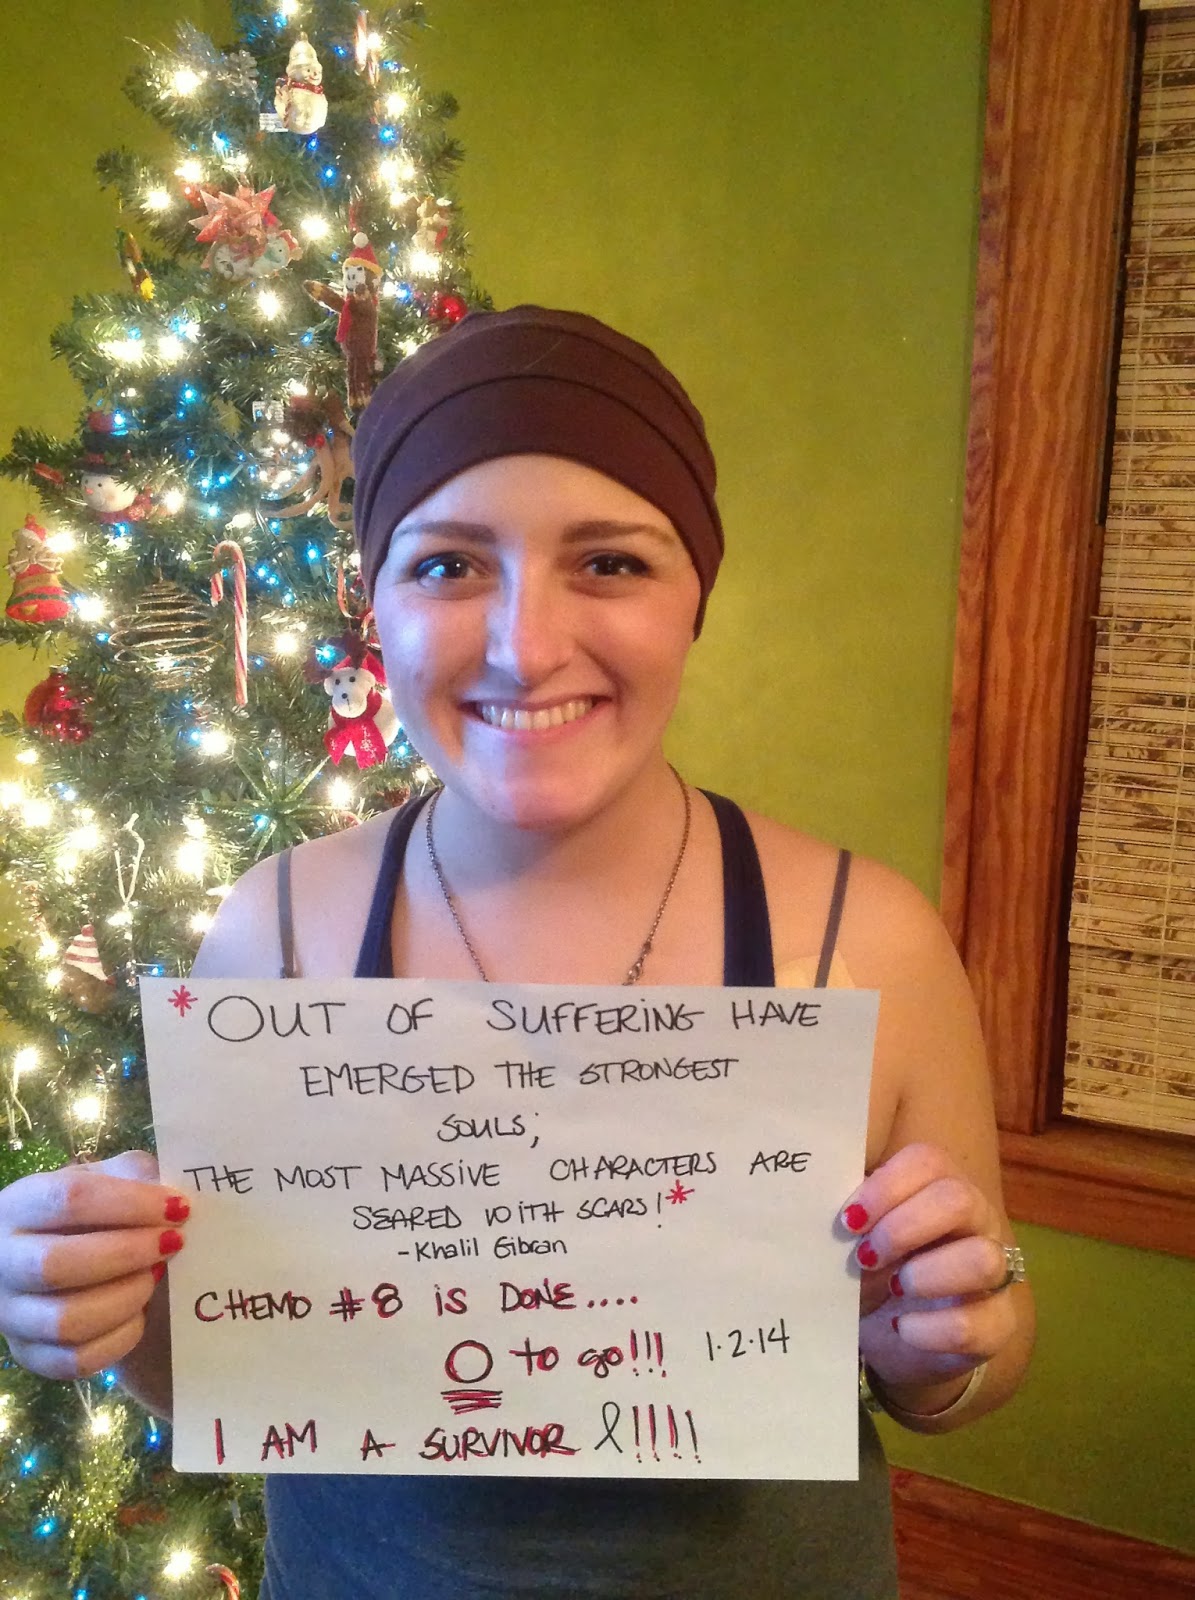 *OUT OF SUFFERING HAVE
EMERGED THE STRONGEST
SOULS;
THE MOST MASSIVE CHARACTERS ARE
SEARED WITH SCARS!*
- Khalil Gibran
CHEMO #8 is DONE....
0 to go!!! 1.2.14
I AM A SURVIVOR !!!!